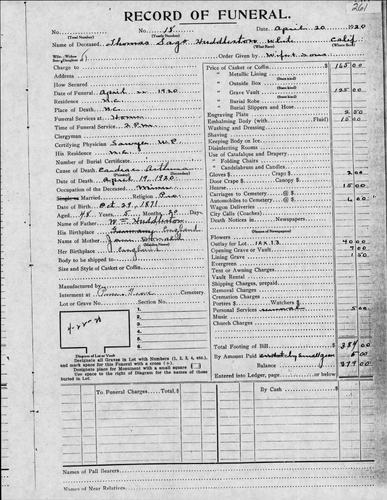 261
RECORD OF FUNERAL.
No. No. 18 Date, April 20 1920
(Total Number) (Yearly Number)
Name of Deceased, Thomas Huddleston, White Calif.
(What Race) (Where Born)
Wife-Widow
Son-Daughter of Order Given by Wife & Sons
Charge to
Address
How Secured
Date of Funeral, April 22 1920
Residence N.C.
Place of Death, N.C.
Funeral Services at Home
Time of Funeral Service, 2 P.M.
Clergyman
Certifying Physician Sawyer W.P.
His Residence N.C.
Number of Burial Certificate
Cause of Death, Cardiac Asthma
Date of Death, April 19 1920
Occupation of the Deceased, Miner
Single or Married, Religion Pro
Date of Birth, Oct 29, 1871
Aged, 48 Years, 5 Months, 20 Days
Name of Father, Huddleston
His Birthplace England
Name of Mother, Jane
Her Birthplace England
Body to be shipped to
Size and Style of Casket or Coffin,
Manufactured by
Interment at Cemetery
Lot or Grave No. Section No.
1
2
3
4
5
Diagram of Lot or Vault
Designate all Graves in Lot with Numbers (1, 2, 3, 4, etc.), and mark space for this Funeral with a cross (+)
Designate place for Monument with a small square
Use space to the right of Diagram for the names of those buried in Lot.
Price of Casket or Coffin, $165 00
" Metallic Lining
" Outside Box
" Grave Vault 125 00
" Burial Robe
" Burial Slippers and Hose
Engraving Plate 2 50
Embalming Body (with Fluid) 15 00
Washing and Dressing
Shaving
Keeping Body on Ice
Disinfecting Rooms
Use of Catafalque and Drapery
" Folding Chairs
" Candelabrum and Candles
Gloves $ Crape $ 2 00
Door Crape Canopy $
Hearse 15 00
Carriages to Cemetery @ $
Automobiles to Cemetery @ $ 6 00
Wagon Deliveries
City Calls (Coaches)
Death Notices in Newspapers
Flowers
Outlay for Lot 12x13 40 00
Opening Grave or Vault 9 00
Lining Grave 1 50
Evergreen
Tent or Awning Charges
Vault Rental
Shipping Charges, prepaid
Removal Charges
Cremation Charges
Porters $ Watchers $
Personal Services removal 5 00
Music
Church Charges
Total Footing of Bill $
By Amount Paid 5 00
Balance $379 00
Entered into Ledger, page or below.
To Funeral Charges By Cash
Names of Pall Bearers
Names of Near Relatives